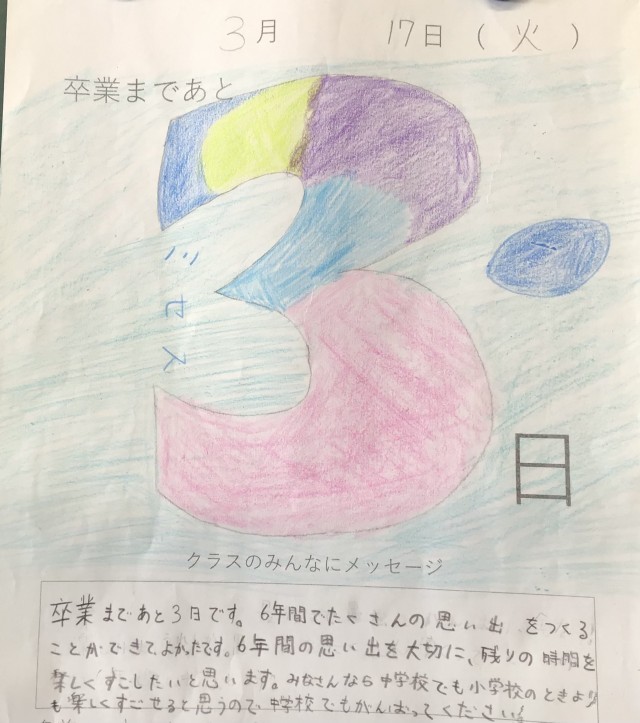 3月 17日(火)
卒業まであと
3
ミセス
日
クラスのみんなにメッセージ
卒業まであと3日です。6年間でたくさんの思い出をつくる
ことができてよかったです。6年間の思い出を大切に、残りの時間を
楽しくすごしたいと思います。みなさんなら中学校でも小学校のときより
も楽しくすごせると思うので中学校でもがんばってください!